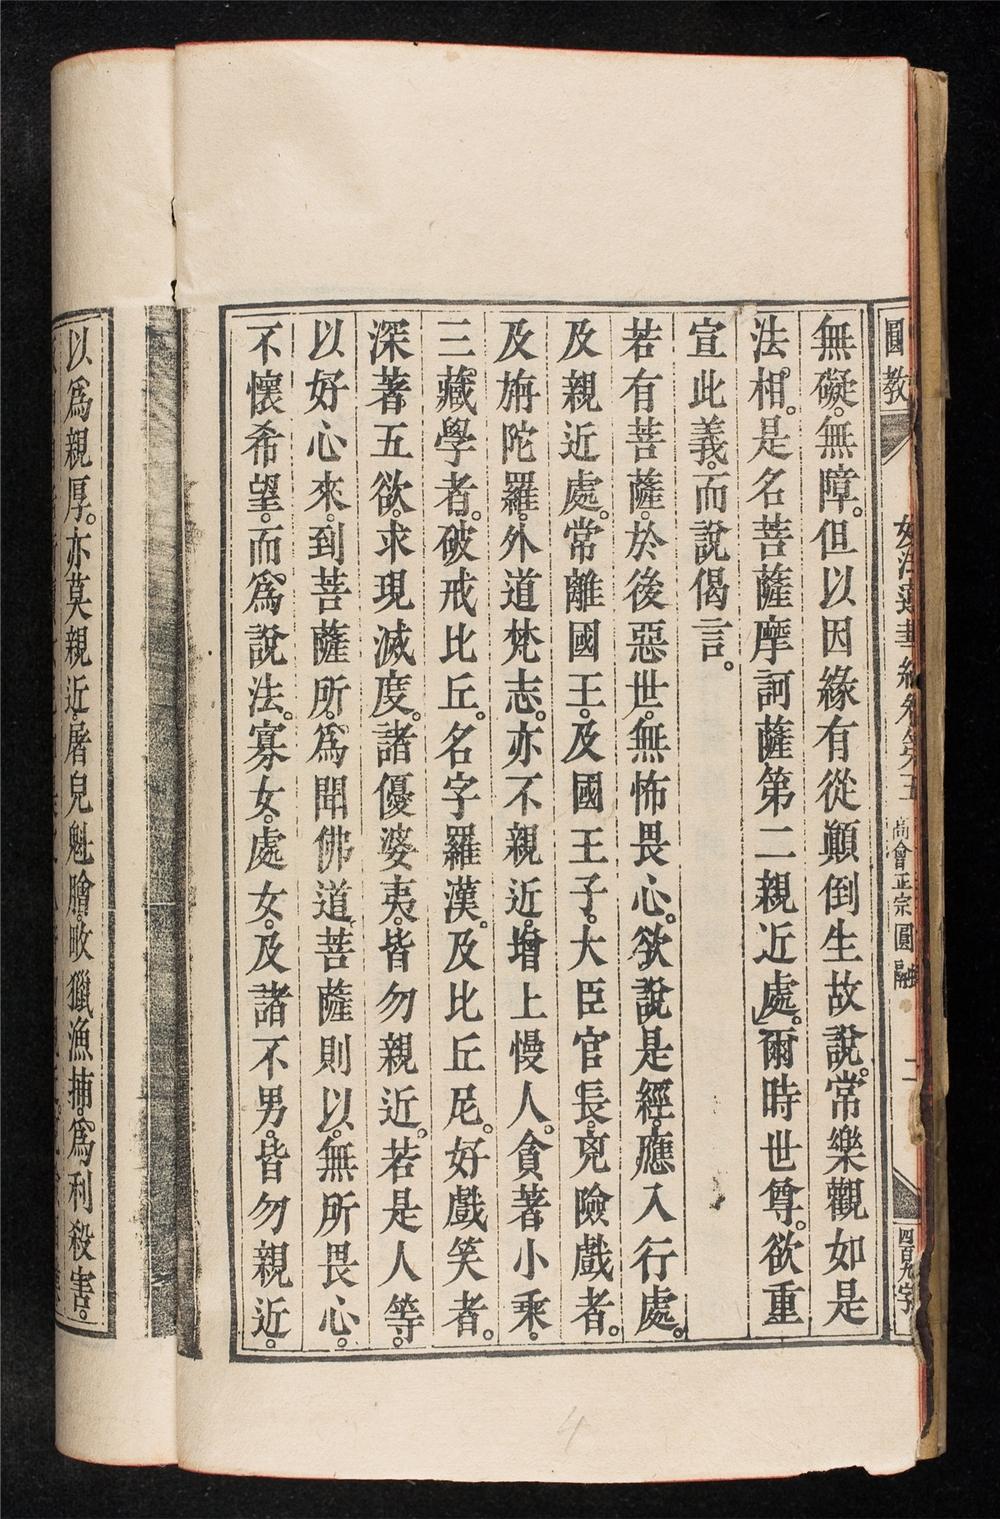 圓教
妙法蓮華經卷第五
高會正宗
圓融
二
四百九字
無礙。無障。但以因緣有從顚倒生故說。常樂觀如是
法相。是名菩薩摩訶薩第二親近處。爾時世尊。欲重
宣此義。而說偈言。
若有菩薩。於後惡世。無怖畏心。欲說是經。應入行處。
及親近處。常離國王。及國王子。大臣官長。兇險戲者。
及旃陀羅。外道梵志。亦不親近。增上慢人。貪著小乘。
三藏學者。破戒比丘。名字羅漢。及比丘尼。好戲笑者。
深著五欲。求現滅度。諸優婆夷。皆勿親近。若是人等。
以好心來。到菩薩所。爲聞佛道。菩薩則以。無所畏心。
不懷希望。而爲說法。寡女。處女。及諸不男。皆勿親近。
以爲親厚。亦莫親近。屠兒魁膾。畋獵漁捕。爲利殺害。
4